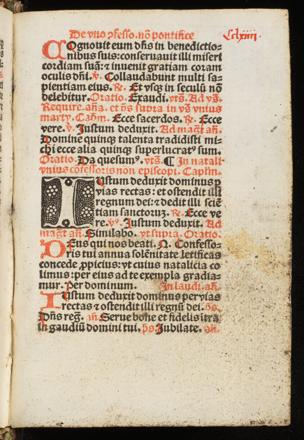 De vno ꝯfesso. nō pontifice
Cclxiiij.
COgnouit eum dn̄s in benedictio-
nibus suis: conseruauit illi miseri
cordiam suā: ⁊ inuenit gratiam coram
oculis dn̄i. v. Collaudabunt multi sa-
pientiam eius. ⁊ Et vsqꝫ in seculū nō
delebitur. Oratio. Exaudi.
marty. Capm̄. Ecce sacerdos. Ecce
vere. v. Iustum deduxit. Ad mag̃t añ.
Domine quinqꝫ talenta tradidisti mi-
chi ecce alia quinqꝫ superlucratꝰ sum.
Oratio. Da quesumꝰ. ¶ In natali-
vnius cōfessoris non episcopi. Capłm.
IUstum deduxit dominus p
vias rectas: et ostendit illi
regnum dei: ⁊ dedit illi sciē
tiam sanctorū. Ecce ve
re. v. Iustum deduxit. Ad
mag̃t añ. Similabo. vt supra. Oratio.
DEus qui nos beati. N. Confesso-
ris tui annua solēnitate letificas
concede ꝓpicius: vt cuius natalicia co
limus: per eius ad te exempla gradia-
mur. Per dominum. In laudi. añ.
IUstum deduxit dominus per vias
rectas ⁊ ostendit illi regnū dei. p̄s.
Dn̄s reg̃. añ Serue bone et fidelis ītra
in gaudiū domini tui. p̄s Iubilate. añ.